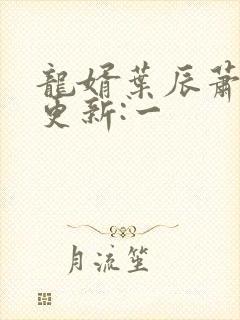 龍婿葉辰蕭
更新:一
月流笙